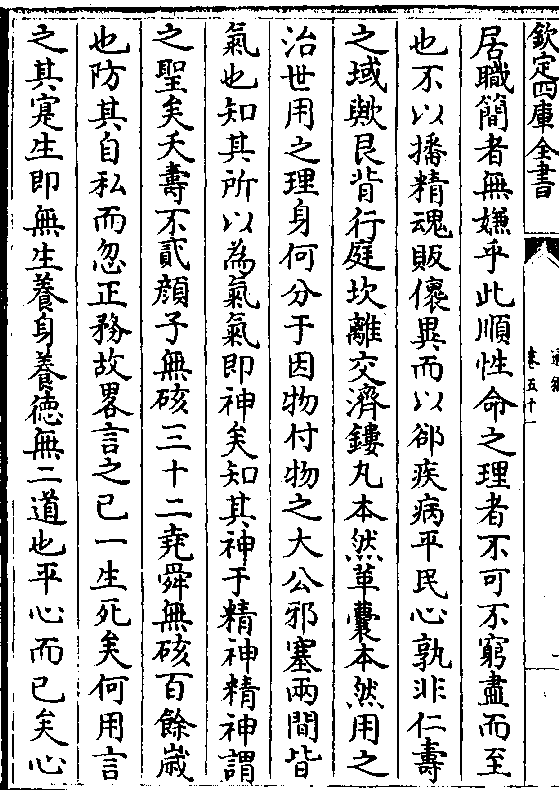 欽定四庫全書
通雅
卷五十一
居職簡者無嫌乎此順性命之理者不可不窮盡而至
也不以播精魂販儇異而以郤疾病平民心孰非仁壽
之域歟艮背行庭坎離交濟鏤丸本然革囊本然用之
治世用之理身何分于因物付物之大公邪塞兩間皆
氣也知其所以為氣氣即神矣知其神于精神精神謂
之聖矣夭壽不貳顔子無礙三十二堯舜無礙百餘嵗
也防其自私而忽正務故畧言之已一生死矣何用言
之其寔生即無生養身養徳無二道也平心而已矣心